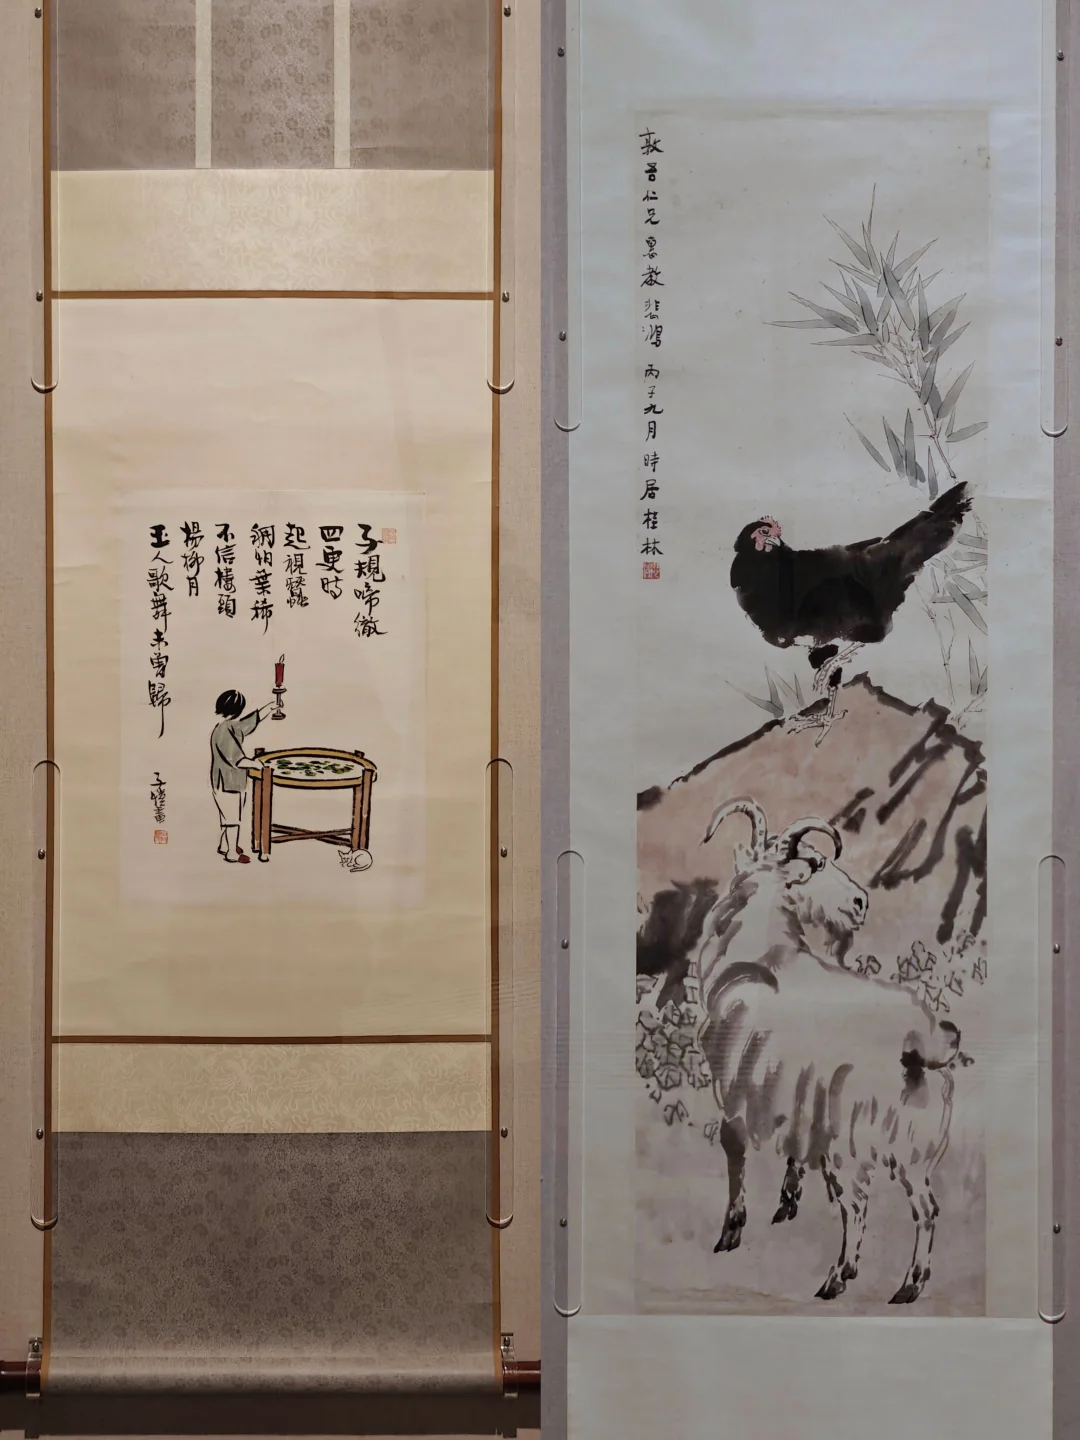 子規啼徹
四更時
起視蠶
稠怕葉稀
不信樓頭
楊柳月
玉人歌舞未曾歸
子愷畫
敦吾仁兄惠教 悲鴻 丙子九月時居桂林